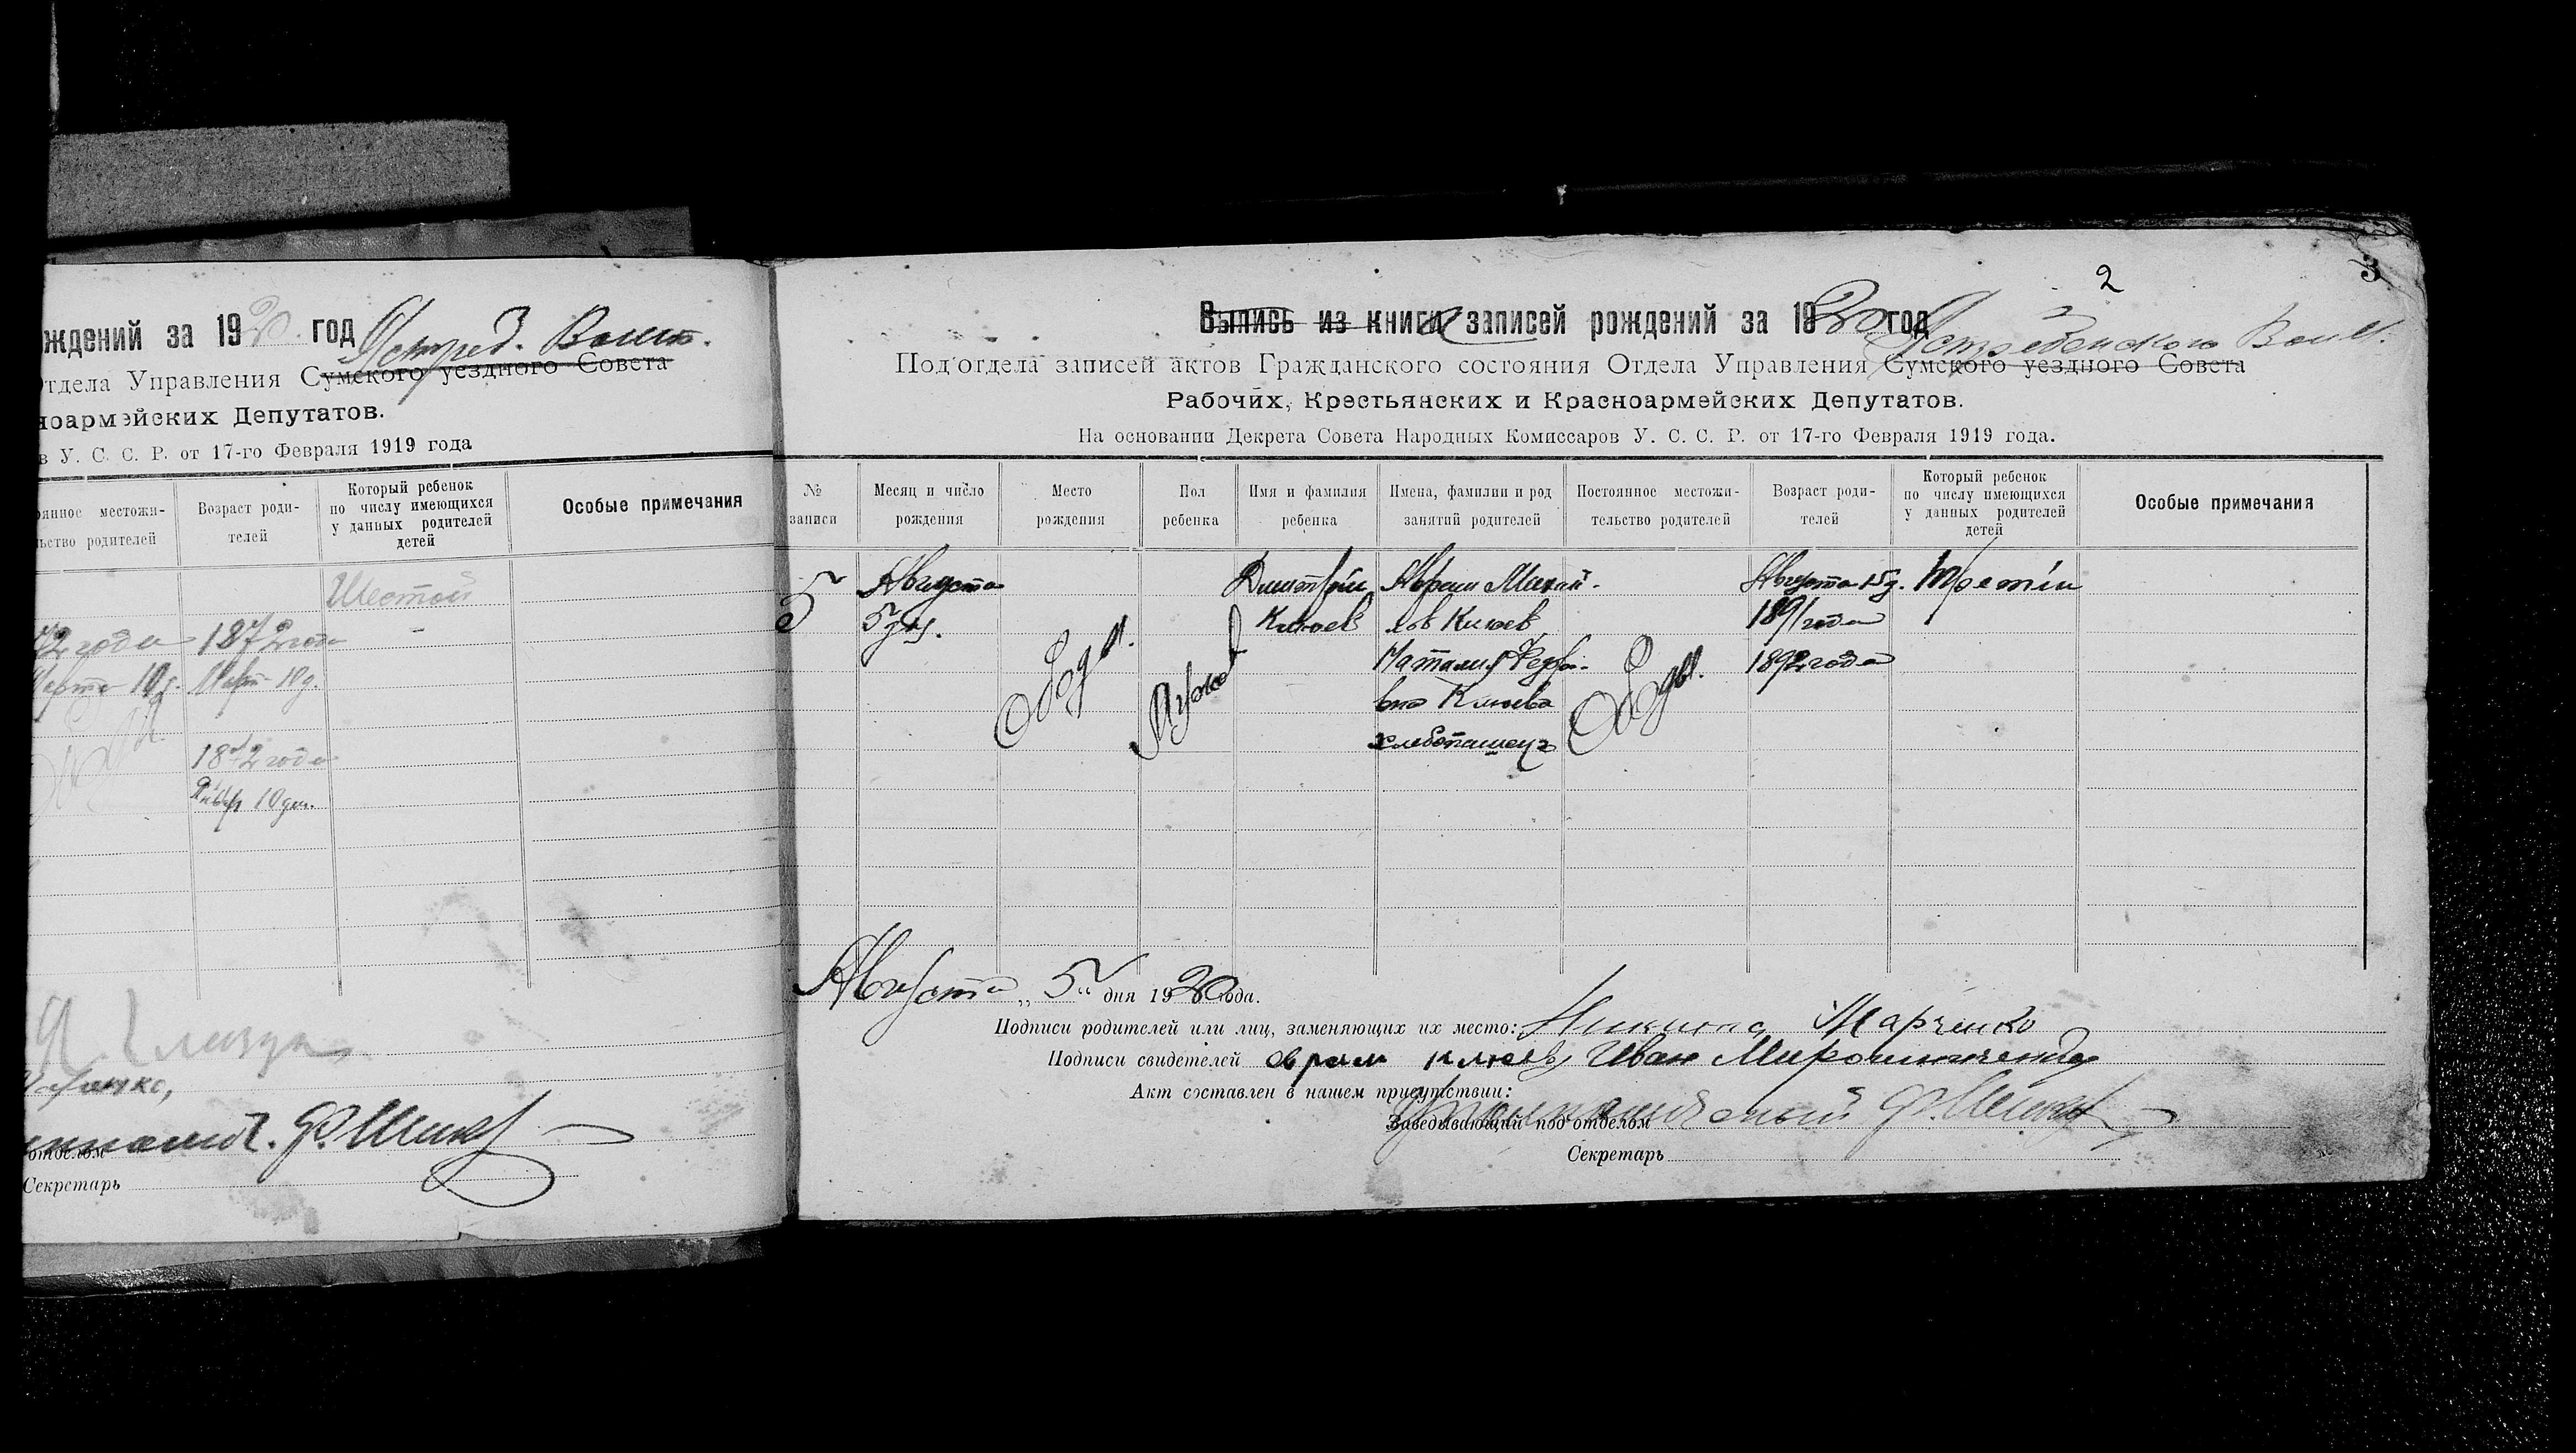 ждений за 1920 год Астред. Волит.
Отдела Управления Сумского уездного Совета
ноармейских Депутатов.
в У. С. С. Р. от 17-го Февраля 1919 года
янное местожи-
льство родителей
Возраст роди-
телей
Который ребенок
по числу имеющихся
у данных родителей
детей
Особые примечания
Шестой
72 года 1872 года
Марта 10 д. Март 10 д.
1872 года
Январ 10 дн.
отделом
Секретарь
2
3
Выпись из книги записей рождений за 1920 год
Подотдела записей актов Гражданского состояния Отдела Управления Сумского уездного Совета
Рабочих, Крестьянских и Красноармейских Депутатов.
На основании Декрета Совета Народных Комиссаров У. С. С. Р. от 17-го Февраля 1919 года.
№
записи
Месяц и число
рождения
Место
рождения
Пол
ребенка
Имя и фамилия
ребенка
Имена, фамилии и род
занятий родителей
Постоянное местожи-
тельство родителей
Возраст роди-
телей
Который ребенок
по числу имеющихся
у данных родителей
детей
Особые примечания
5
Августа
5 дня.
Ободы.
Мужс
Димитрий
Клюев
Аврам Михай-
лов Клюев
Наталия Федо-
вна Клюева
хлебопашец
Ободы.
Августа 15 д.
1891 года
1892 года
Третiй
Августа „ 5 “ дня 1920 года.
Подписи родителей или лиц, заменяющих их место: Никита Марченко
Подписи свидетелей Аврам Клюев, Иван Мирошниченко
Акт составлен в нашем присутствии:
Заведывающий подотделом
Секретарь